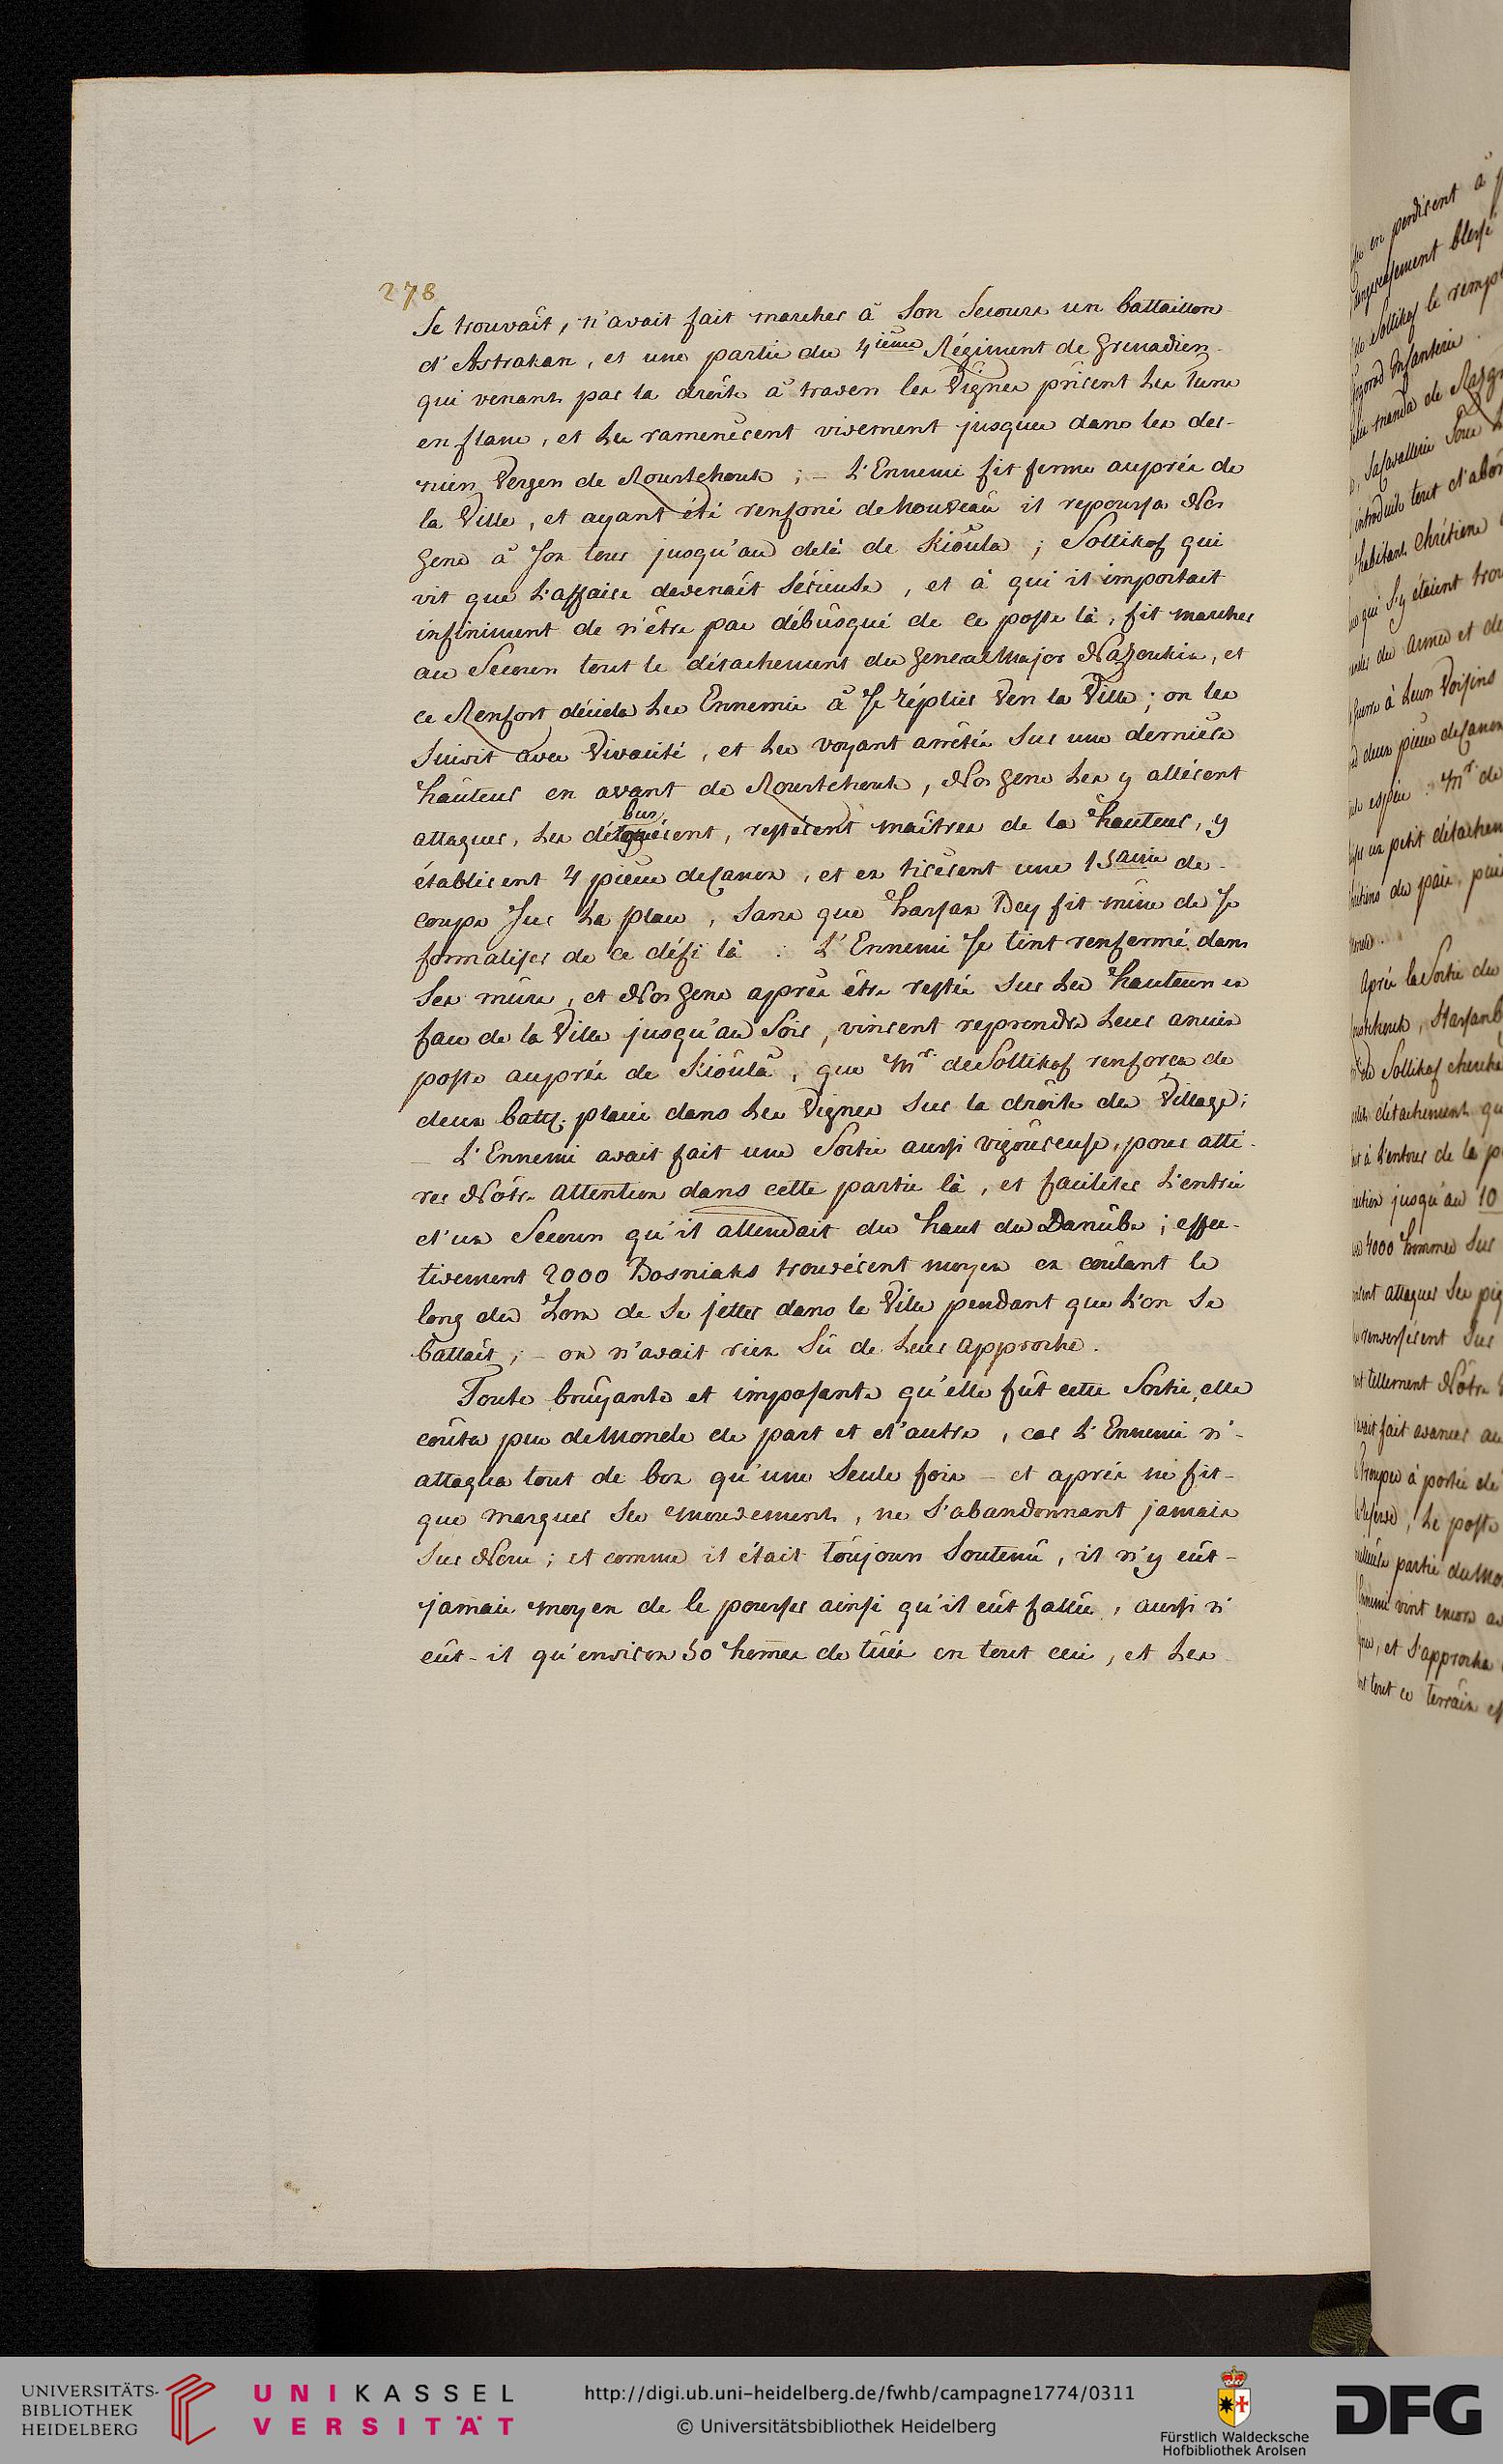 278
Se trouvait, n'avait fait marcher à Son Secours un battaillon
d'Astrakan, et une partie du 4ieme Régiment de Grenadiers
qui venants par la droite à travers les Vignes prirent les Turcs
en flanc, et les ramenèrent vivement jusques dans les der-
niers Vergers de Rourtchouk ; - L'Ennemi fit ferme auprés de
la Ville, et ayant été renforcé de nouveau il repoussa Nos
gens à Son tour jusqu'au delà de Kioula ; Soltikof qui
vit que L'affaire devenait Sérieuse, et à qui il importait
infiniment de n'être pas débusqué de ce poste là, fit marcher
au Secours tout le détachement du General Major Nazoukin, et
ce Renfort décida les Ennemis à Se réplier Vers la Ville ; on les
Suivit avec Vivacité, et les voyant arrêtés Sur une dernière
hauteur en avant de Rourtchouk, Nos gens les y allèrent
bus
attaquer, les déloquèrent, restèrent maîtres de la hauteur, y
établirent 4 pièces de Canon, et en tirèrent une 15aine de
coups Sur la place, Sans que Hassan Bey fit mine de Se
formaliser de ce défi là . L'Ennemi Se tint renfermé dans
Ses murs, et Nos gens aprés être restés Sur les hauteurs en
face de la Ville jusqu'au Soir, vinrent reprendre leur ancien
poste auprés de Kioula, que Mr de Soltikof renforça de
deux batt: placés dans les Vignes Sur la droite du Village ;
- L'Ennemi avait fait une Sortie aussi vigoureuse, pour atti-
rer Nôtre Attention dans cette partie là, et faciliter L'entrée
d'un Secours qu'il attendait du haut du Danube ; effec-
tivement 2000 Bosniaks trouvèrent moyen en coulant le
long du Lom de Se jetter dans la Ville pendant que L'on Se
battait ; - on n'avait rien Sû de leur approche.
Toute bruyante et imposante qu'elle fût cette Sortie, elle
coûta peu de Monde de part et d'autre, car L'Ennemi n'-
attaqua tout de bon qu'une Seule fois - et aprés ne fit-
que marquer Ses mouvements, ne S'abandonnant jamais
Sur Nous ; et comme il était toujours Soutenû, il n'y eût-
jamais moyen de le pousser ainsi qu'il eût fallû, aussi n'
eût-il qu'environ 50 homes de tués en tout ceci, et les
en perdirent à
dangereusement blessé
Soltikof le rempl
Infanterie
manda de Razg
Sa Cavallerie Sous
introduite tout d'abor
habitants Chrétiens
qui S'y étaient trou
armes et de
à leurs Voisins
deux pièces de Canon
espèce : Mr de
un petit détachem
du païs, puis
Aprés la Sortie du
Soltikof cherche
détachements qu
à L'entour de la p
jusqu'au 10
4000 hommes Sur
attaquer les piq
renversèrent Sur
tellement Nôtre
fait avancer au
Troupes à portée de
le poste
partie du Mo
vint encore
et S'approcha
tout ce terrain
UNIVERSITÄTS-
BIBLIOTHEK
HEIDELBERG
UNIKASSEL
VERSITÄT
http://digi.ub.uni-heidelberg.de/fwhb/campagne1774/0311
© Universitätsbibliothek Heidelberg
Fürstlich Waldecksche
Hofbibliothek Arolsen
DFG